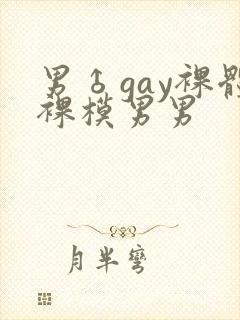 男♂gay裸體
裸模男男
月半彎